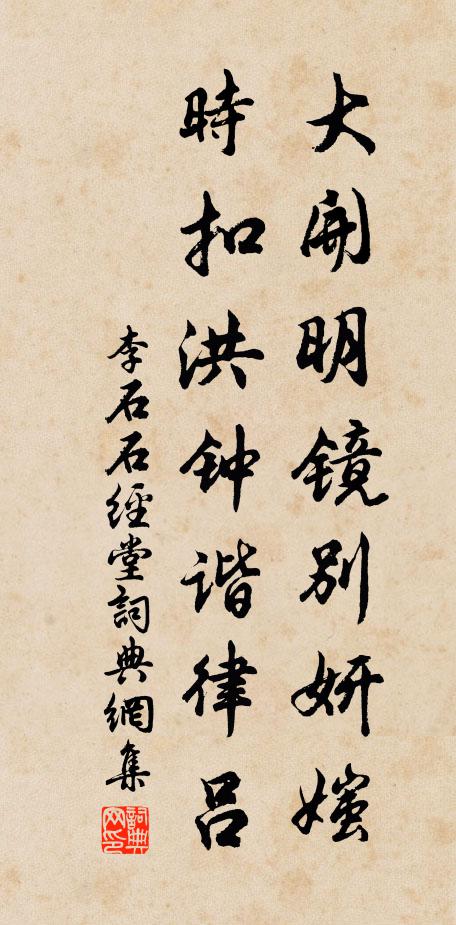 大開明镜別妍媸
時扣洪钟谐律吕
李石石經堂詞典網集
詞典网印